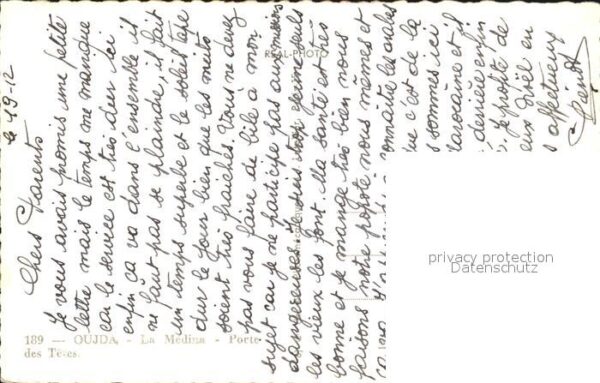 le 19-12
Chers Parents
Je vous avais promis une petite
lettre mais le temps me manque
car le service est très dur ici
enfin ça va dans l'ensemble il
ne faut pas se plaindre, il fait
un temps superbe et le soleil tape
dur le jour bien que les nuits
soient très fraîches. Vous ne devez
pas vous faire de bile à mon
sujet car je ne participe pas aux missions
dangereuses je suis trop jeune seuls
les vieux les font. Ma santé est très
bonne et je mange très bien nous
faisons notre popote nous mêmes et
connaître les arabes
que c'est de la
sommes ici
marocaine et
dernière enfin
Je profite de
eux Noël en
affectueux
REAL-PHOTO
189 — OUJDA. - La Médina - Porte
des Têtes.
privacy protection
Datenschutz